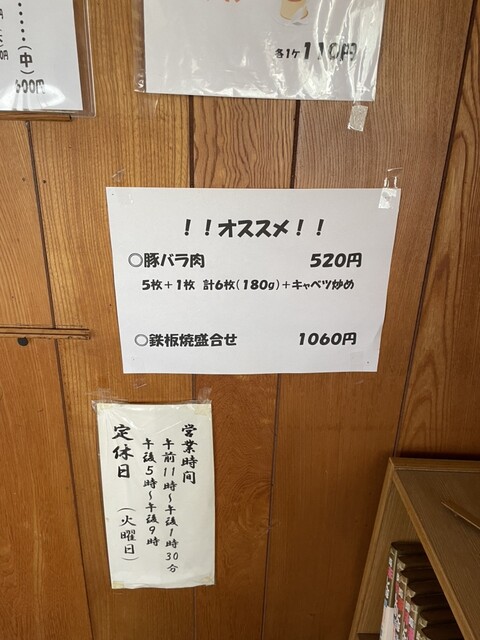 (中)
600円
各1ケ110円
！！オススメ！！
○豚バラ肉 520円
5枚＋1枚 計6枚(180g)＋キャベツ炒め
○鉄板焼盛合せ 1060円
営業時間
午前11時〜午後1時30分
午後5時〜午後9時
定休日 (火曜日)